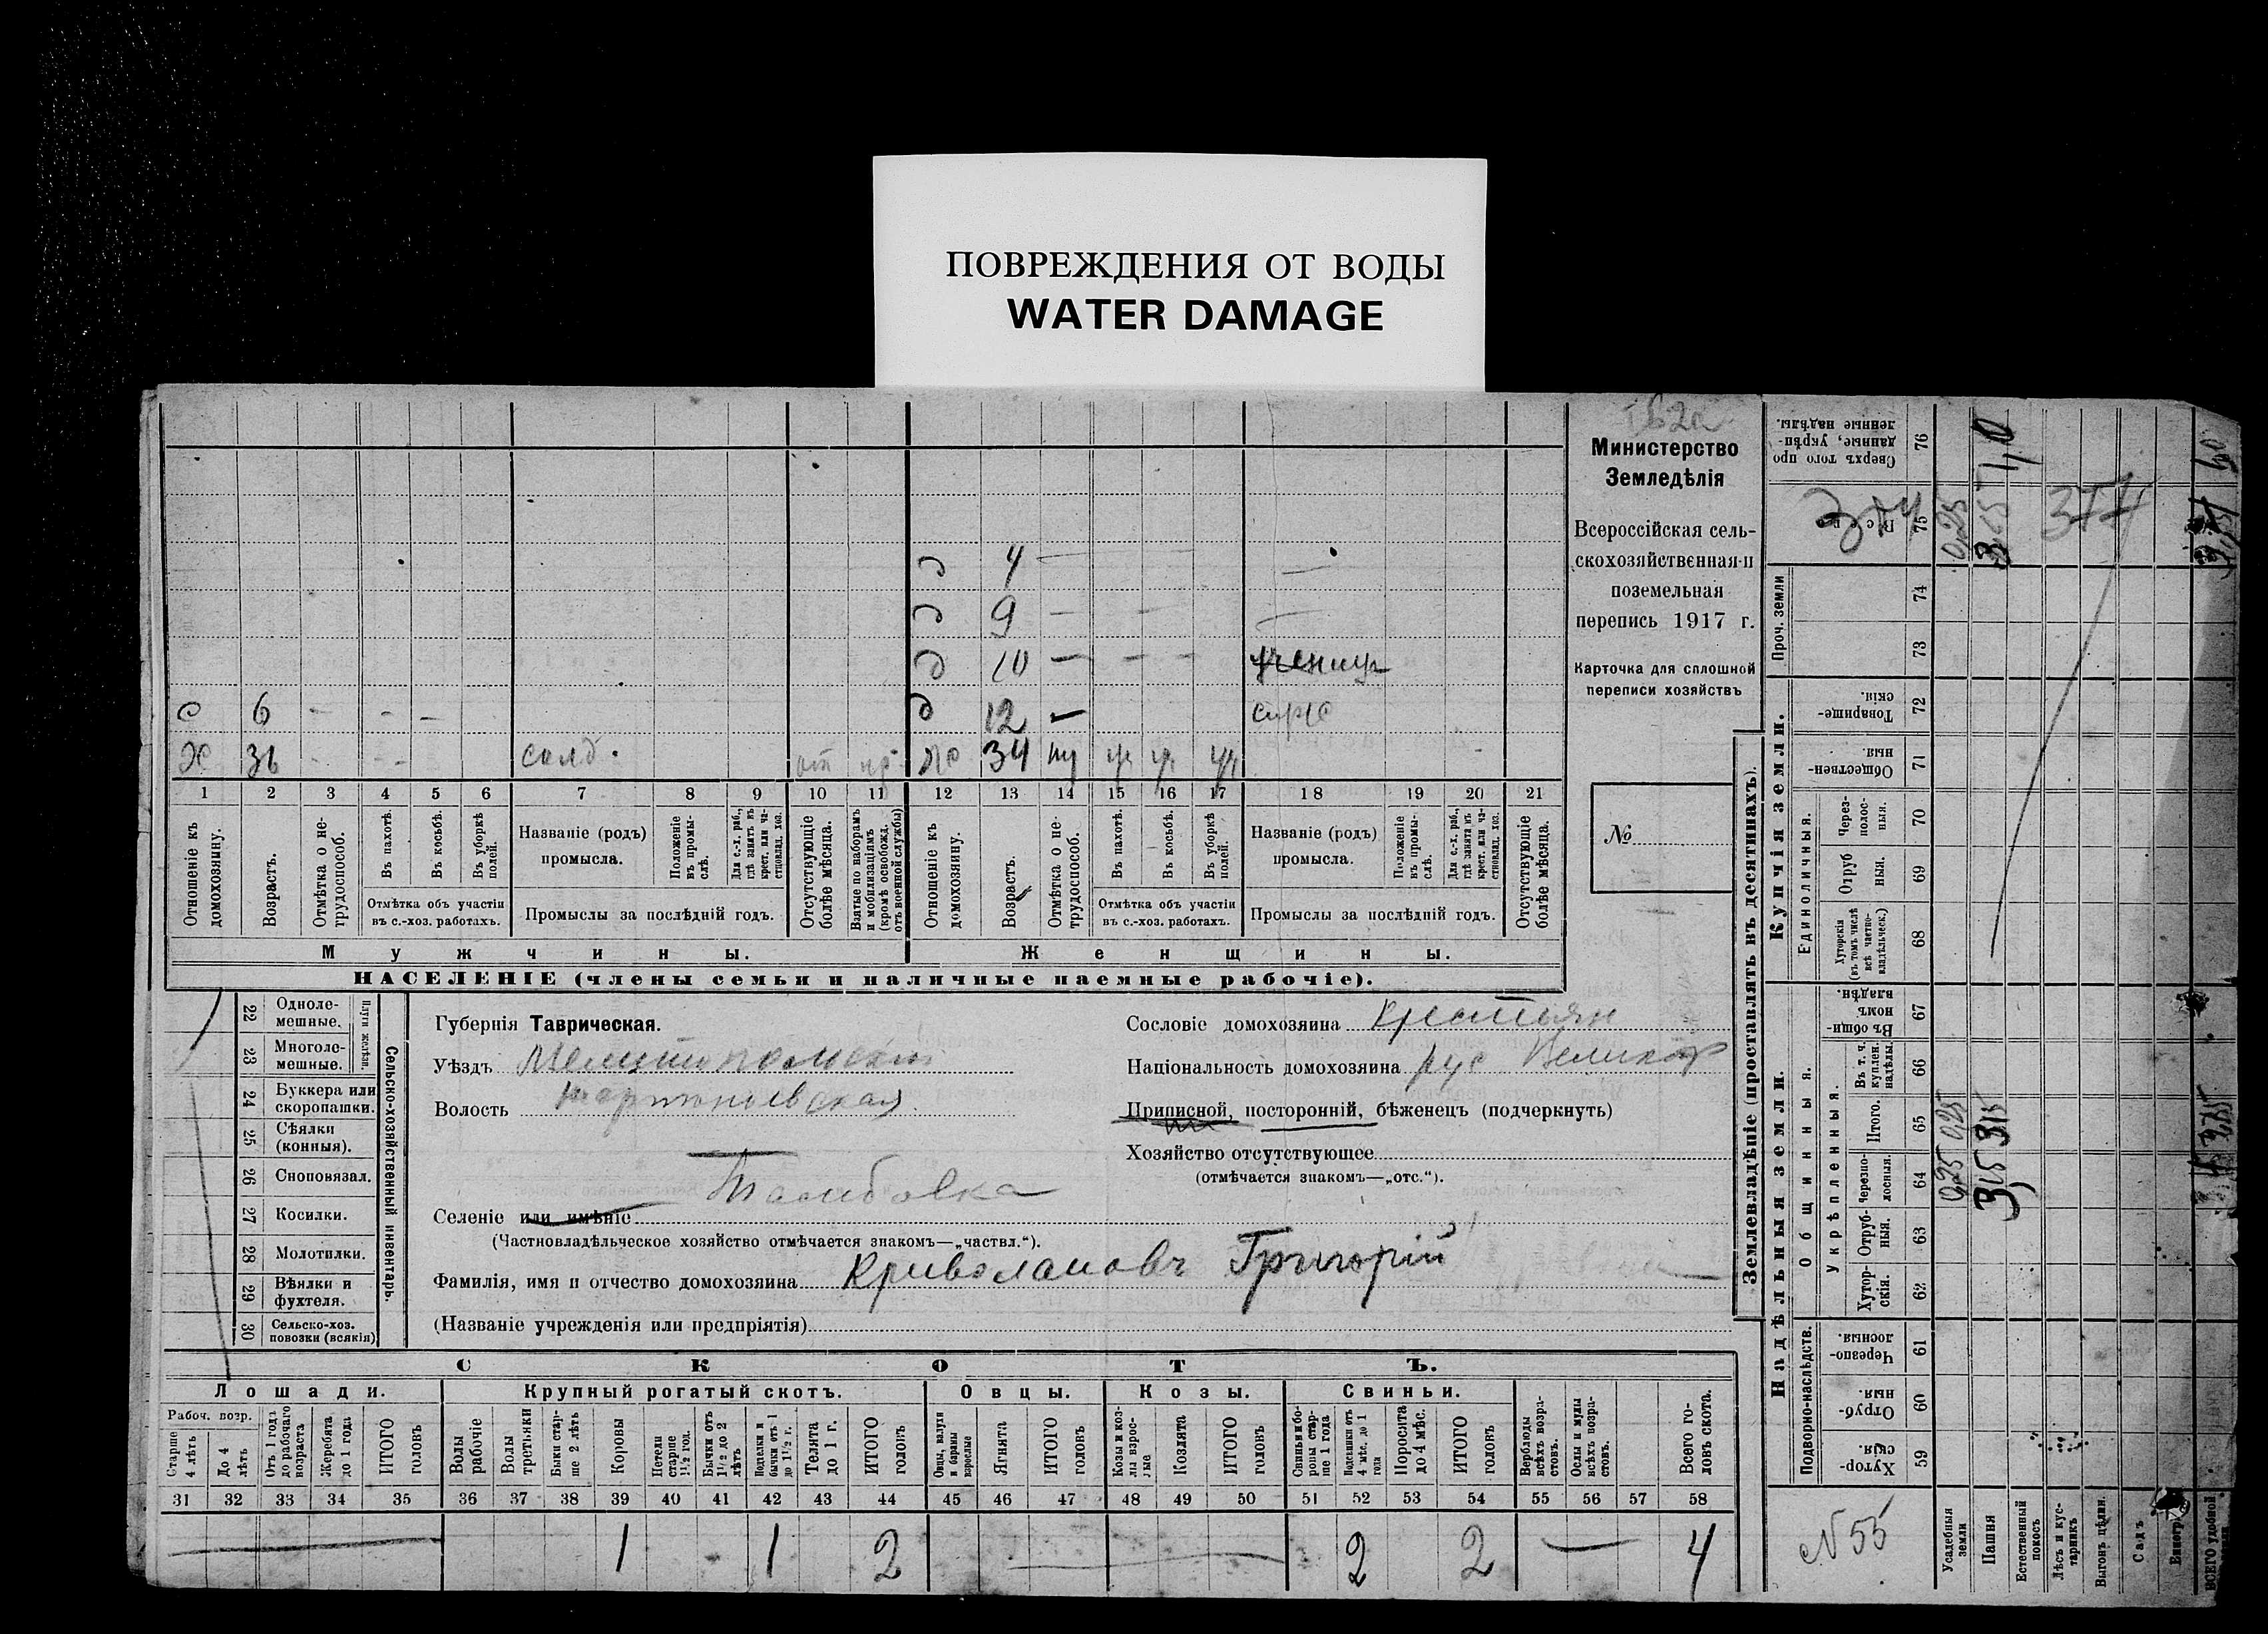 ПОВРЕЖДЕНИЯ ОТ ВОДЫ
WATER DAMAGE
Министерство
Земледѣлія
Всероссійская сель-
скохозяйственная и
поземельная
перепись 1917 г.
Карточка для сплошной
переписи хозяйствъ
№
д 4
д 9
д 10
с 6 д 12
х 36 солд. от пр 34
1 2 3 4 5 6 7 8 9 10 11 12 13 14 15 16 17 18 19 20 21
Отношеніе къ домохозяину.
Возрастъ.
Отмѣтка о не-трудоспособ.
Въ пахотѣ.
Въ косьбѣ.
Въ уборкѣ полей.
Отмѣтка объ участіи
въ с.-хоз. работахъ.
Названіе (родъ)
промысла.
Положеніе въ промы-слѣ.
Для с.-х. раб., гдѣ занятъ въ крест. или ча-стновлад. хоз.
Промыслы за послѣдній годъ.
Отсутствующіе болѣе мѣсяца.
Взятые по наборамъ и мобилизаціямъ (кромѣ освобожд. отъ военной службы)
Отношеніе къ домохозяину.
Возрастъ.
Отмѣтка о не-трудоспособ.
Въ пахотѣ.
Въ косьбѣ.
Въ уборкѣ полей.
Отмѣтка объ участіи
въ с.-хоз. работахъ.
Названіе (родъ)
промысла.
Положеніе въ промы-слѣ.
Для с.-х. раб., гдѣ занята въ крест. или ча-стновлад. хоз.
Промыслы за послѣдній годъ.
Отсутствующіе болѣе мѣсяца.
Мужчины. Женщины.
НАСЕЛЕНІЕ (члены семьи и наличные наемные рабочіе).
22 Одноле-мешные.
23 Многоле-мешные.
Плуги желѣзн.
24 Буккера или скоропашки.
25 Сѣялки (конныя).
26 Сноповязал.
27 Косилки.
28 Молотилки.
29 Вѣялки и фухтеля.
30 Сельско-хоз. повозки (всякія)
Сельско-хозяйственный инвентарь.
1
Губернія Таврическая.
Уѣздъ Мелитопольскій
Волость
Селеніе или имѣніе Тамбовка
(Частновладѣльческое хозяйство отмѣчается знакомъ—„частвл.“).
Фамилія, имя и отчество домохозяина Григорій
(Названіе учрежденія или предпріятія)
Сословіе домохозяина крестьян
Національность домохозяина рус Великор
Приписной, посторонній, бѣженецъ (подчеркнуть)
Хозяйство отсутствующее
(отмѣчается знакомъ—„отс.“).
СКОТЪ.
Лошади. Крупный рогатый скотъ. Овцы. Козы. Свиньи.
Рабоч. возр.
Старше 4 лѣтъ
До 4 лѣтъ
Отъ 1 года до рабочаго возраста
Жеребята до 1 года
ИТОГО головъ
Волы рабочіе
Волы третьяки
Быки стар-ше 2 лѣтъ
Коровы
Нетели старше 1½ год.
Бычки отъ 1½ до 2 лѣтъ
Подтелки и бычки отъ 1 до 1½ г.
Телята до 1 г.
ИТОГО головъ
Овцы, валухи и бараны взрослые
Ягнята
ИТОГО головъ
Козы и коз-лы взрос-лые
Козлята
ИТОГО головъ
Свиньи и бо-ровы стар-ше 1 года
Подсвинки отъ 4 мѣс. до 1 года
Поросята до 4 мѣс.
ИТОГО головъ
Верблюды всѣхъ возра-стовъ.
Ослы и мулы всѣхъ возра-стовъ.
Всего го-ловъ скота.
31 32 33 34 35 36 37 38 39 40 41 42 43 44 45 46 47 48 49 50 51 52 53 54 55 56 57 58
1 1 2 2 2 4
Землевладѣніе (проставлять въ десятинахъ).
Надѣльныя земли. Купчія земли. Проч. земли
Подворно-наслѣдств.
Общинныя.
Укрѣпленныя.
Единоличныя.
Хутор-скія. 59
Отруб-ныя 60
Черезпо-лосныя. 61
Хутор-скія. 62
Отруб-ныя. 63
Черезпо-лосныя. 64
Итого. 65
Въ т. ч. куплен. надѣлы. 66
Въ общи-номъ владѣн. 67
Хуторскія (въ томъ числѣ всѣ частно-владѣльческ.) 68
Отруб ныя. 69
Через-полос-ныя. 70
Обществен-ныя 71
Товарище-скія. 72
73
74
Всего 75
Сверхъ того про данные, укрѣп-ленные надѣлы. 76
Усадебныя земли 0,25 0,25 0,25
Пашня
Естественный покосъ
Лѣсъ и кус-тарникъ
Выгонъ цѣлин.
Садъ
Виногр.
ВСЕГО удобной
N 55